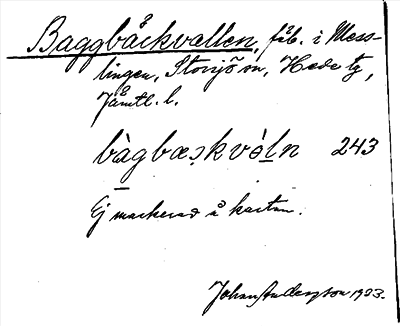 Baggbäckvallen, fäb. i Mess-
lingen, Storsjö sn, Hede tg,
Jämtl. l.
bàgbæskvòln 243
Ej markerad å kartan.
Johan Anderson 1923.